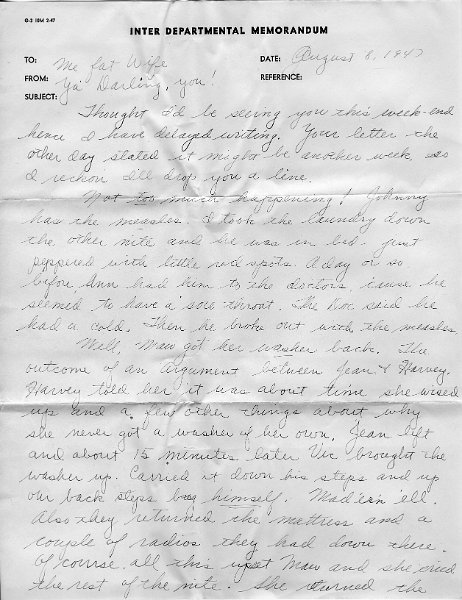 G-3 IDM 2-47
INTER DEPARTMENTAL MEMORANDUM
TO: Me fat Wife
DATE: August 8, 1947
FROM: Ya' Darling, you!
REFERENCE:
SUBJECT:
Thought I'd be seeing you this week-end
hence I have delayed writing. Your letter the
other day stated it might be another week, so
I reckon I'll drop you a line.
Not too much happening! Johnny
has the measles. I took the laundry down
the other nite and he was in bed. just
peppired with little red spots. A day or so
before Ann had him to the doctors, cause he
seemed to have a sore throat. The Doc said he
had a cold. Then he broke out with the measles.
Well, Maw got her washer back. The
outcome of an argument between Jean & Harvey.
Harvey told her it was about time she wised
up and a few other things about why
she never got a washer of her own. Jean left
and about 15 minutes later brought the
washer up. Carried it down his steps and up
our back steps by himself. Mad'ern 'ell.
Also they returned the mattress and a
couple of radios they had down there.
Of course all this upset Maw and she cried
the rest of the nite. She turned the